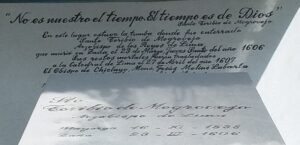 "No es nuestro el tiempo. El tiempo es de Dios"
Santo Toribio de Mogrovejo
En este lugar estuvo la tumba donde fue enterrado
Santo Toribio de Mogrovejo
Arzobispo de los Reyes de Lima
que murió en Zaña el 23 de Marzo Jueves Santo del año 1606
Sus restos mortales fueron trasladados
a la catedral de Lima el 27 de Abril del año 1607
El Obispo de Chiclayo Mons. Jesús Moliné Labarta
Sto.
Toribio de Mogrovejo
Arzobispo de Lima
Mayorga 16 - XI - 1538
Zaña 23 - III - 1606